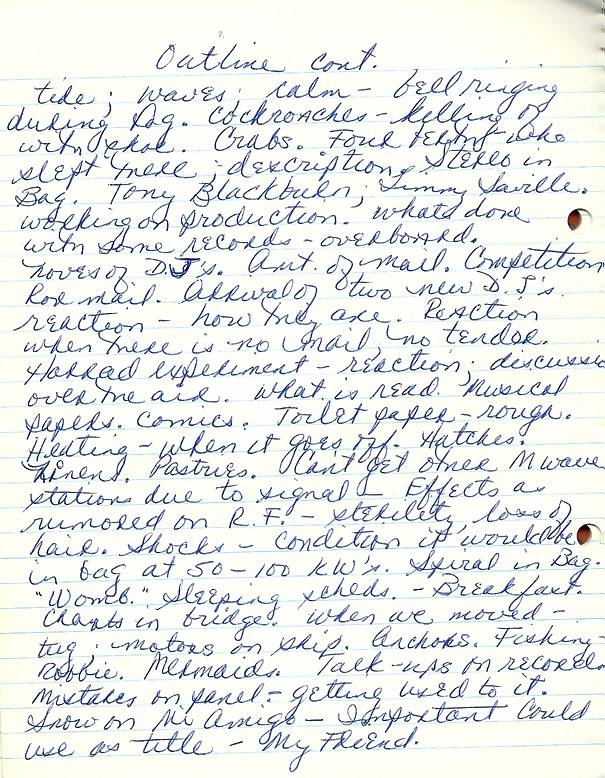 Outline cont.
tide; waves; calm - bell ringing
during fog. Cockroaches - killing of
with shoe. Crabs. Four who
slept there; description. Stereo in
Bag. Tony Blackburn; Jimmy Saville.
working on production. whats done
with some records - overboard.
of D.J's. Amt. of mail. Competition
for mail. Arrival of two new D.J's.
reaction - how they are. Reaction
when there is no mail, no tender.
Harrad experiment - reaction; discussio
over the air. What is read. Musical
papers. Comics. Toilet paper - rough.
Heating - when it goes off. Hatches.
Linens. Pastries. Cant get other M wave
stations due to signal - Effects as
rumored on R.F. - sterility, loss of
hair. Shocks - condition it would be
in bag at 50-100 KW's. Spiral in Bag.
"Womb." Sleeping scheds. - Breakfast.
Charts in bridge. When we moved -
tug; motors on ship. Anchors. Fishing -
Robbie. Mermaids. Talk-ups on records
Mistakes on panel - getting used to it.
Snow on Mi Amigo - Important Could
use as title - My Friend.